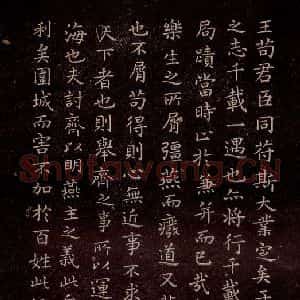 王苟君臣同符斯大業定矣于
之志千載一遇也亦將行千載
局蹟當時止於兼并而已哉
樂生之所屑彊燕而廢道又
也不屑苟得則心無近事不求
天下者也則舉齊之事所以運
海也夫討齊以明燕主之義此兵
利矣圍城而害不加於百姓此
Shufawang.CN